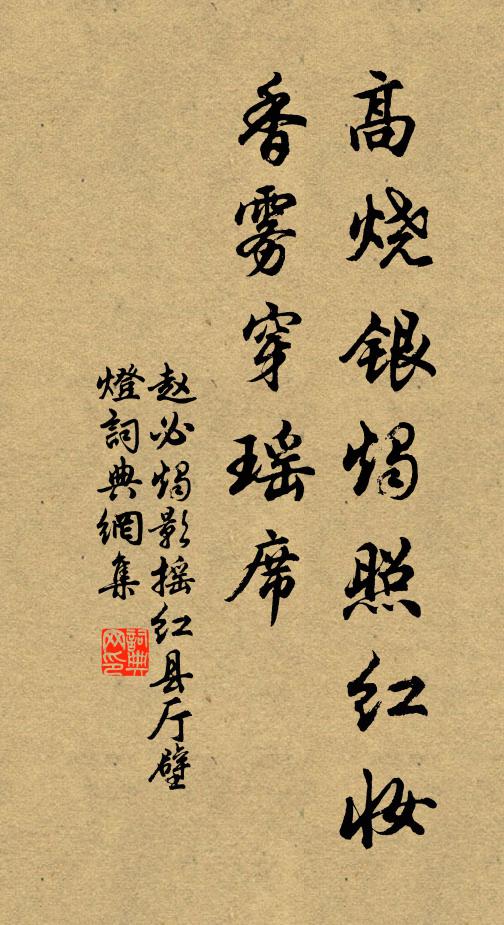 高烧银烛照红妆
香雾穿瑶席
赵必烛影摇红县厅壁
燈詞典網集
詞典网印